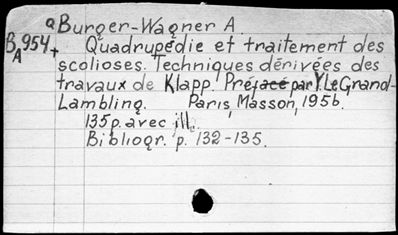 aBurger-Wagner A
B 954+ Quadrupédie et traitement des
A scolioses. Techniques dérivées des
travaux de Klapp. Préjacé par Y. Le Grand-
Lambling. Paris, Masson, 1956.
135 p. avec ill.
Bibliogr. p. 132-135.